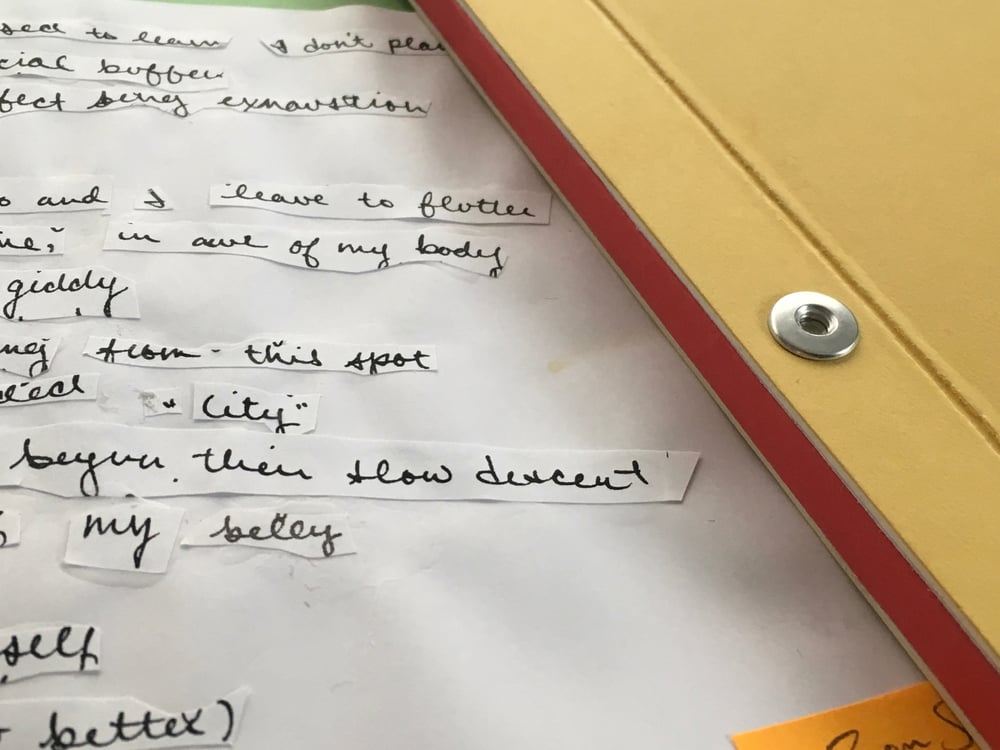 to learn I don't
buffer
being exhaustion
and I leave to flutter
in awe of my body
giddy
from - this spot
"City"
begun. then slow descent
my belly
self
better)